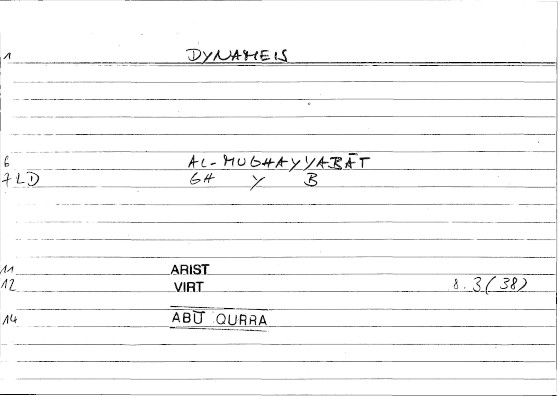 1 DYNAMEIS
6 AL-MUGHAYYABĀT
7 LD GH Y B
11 ARIST
12 VIRT 8.3(38)
14 ABŪ QURRA